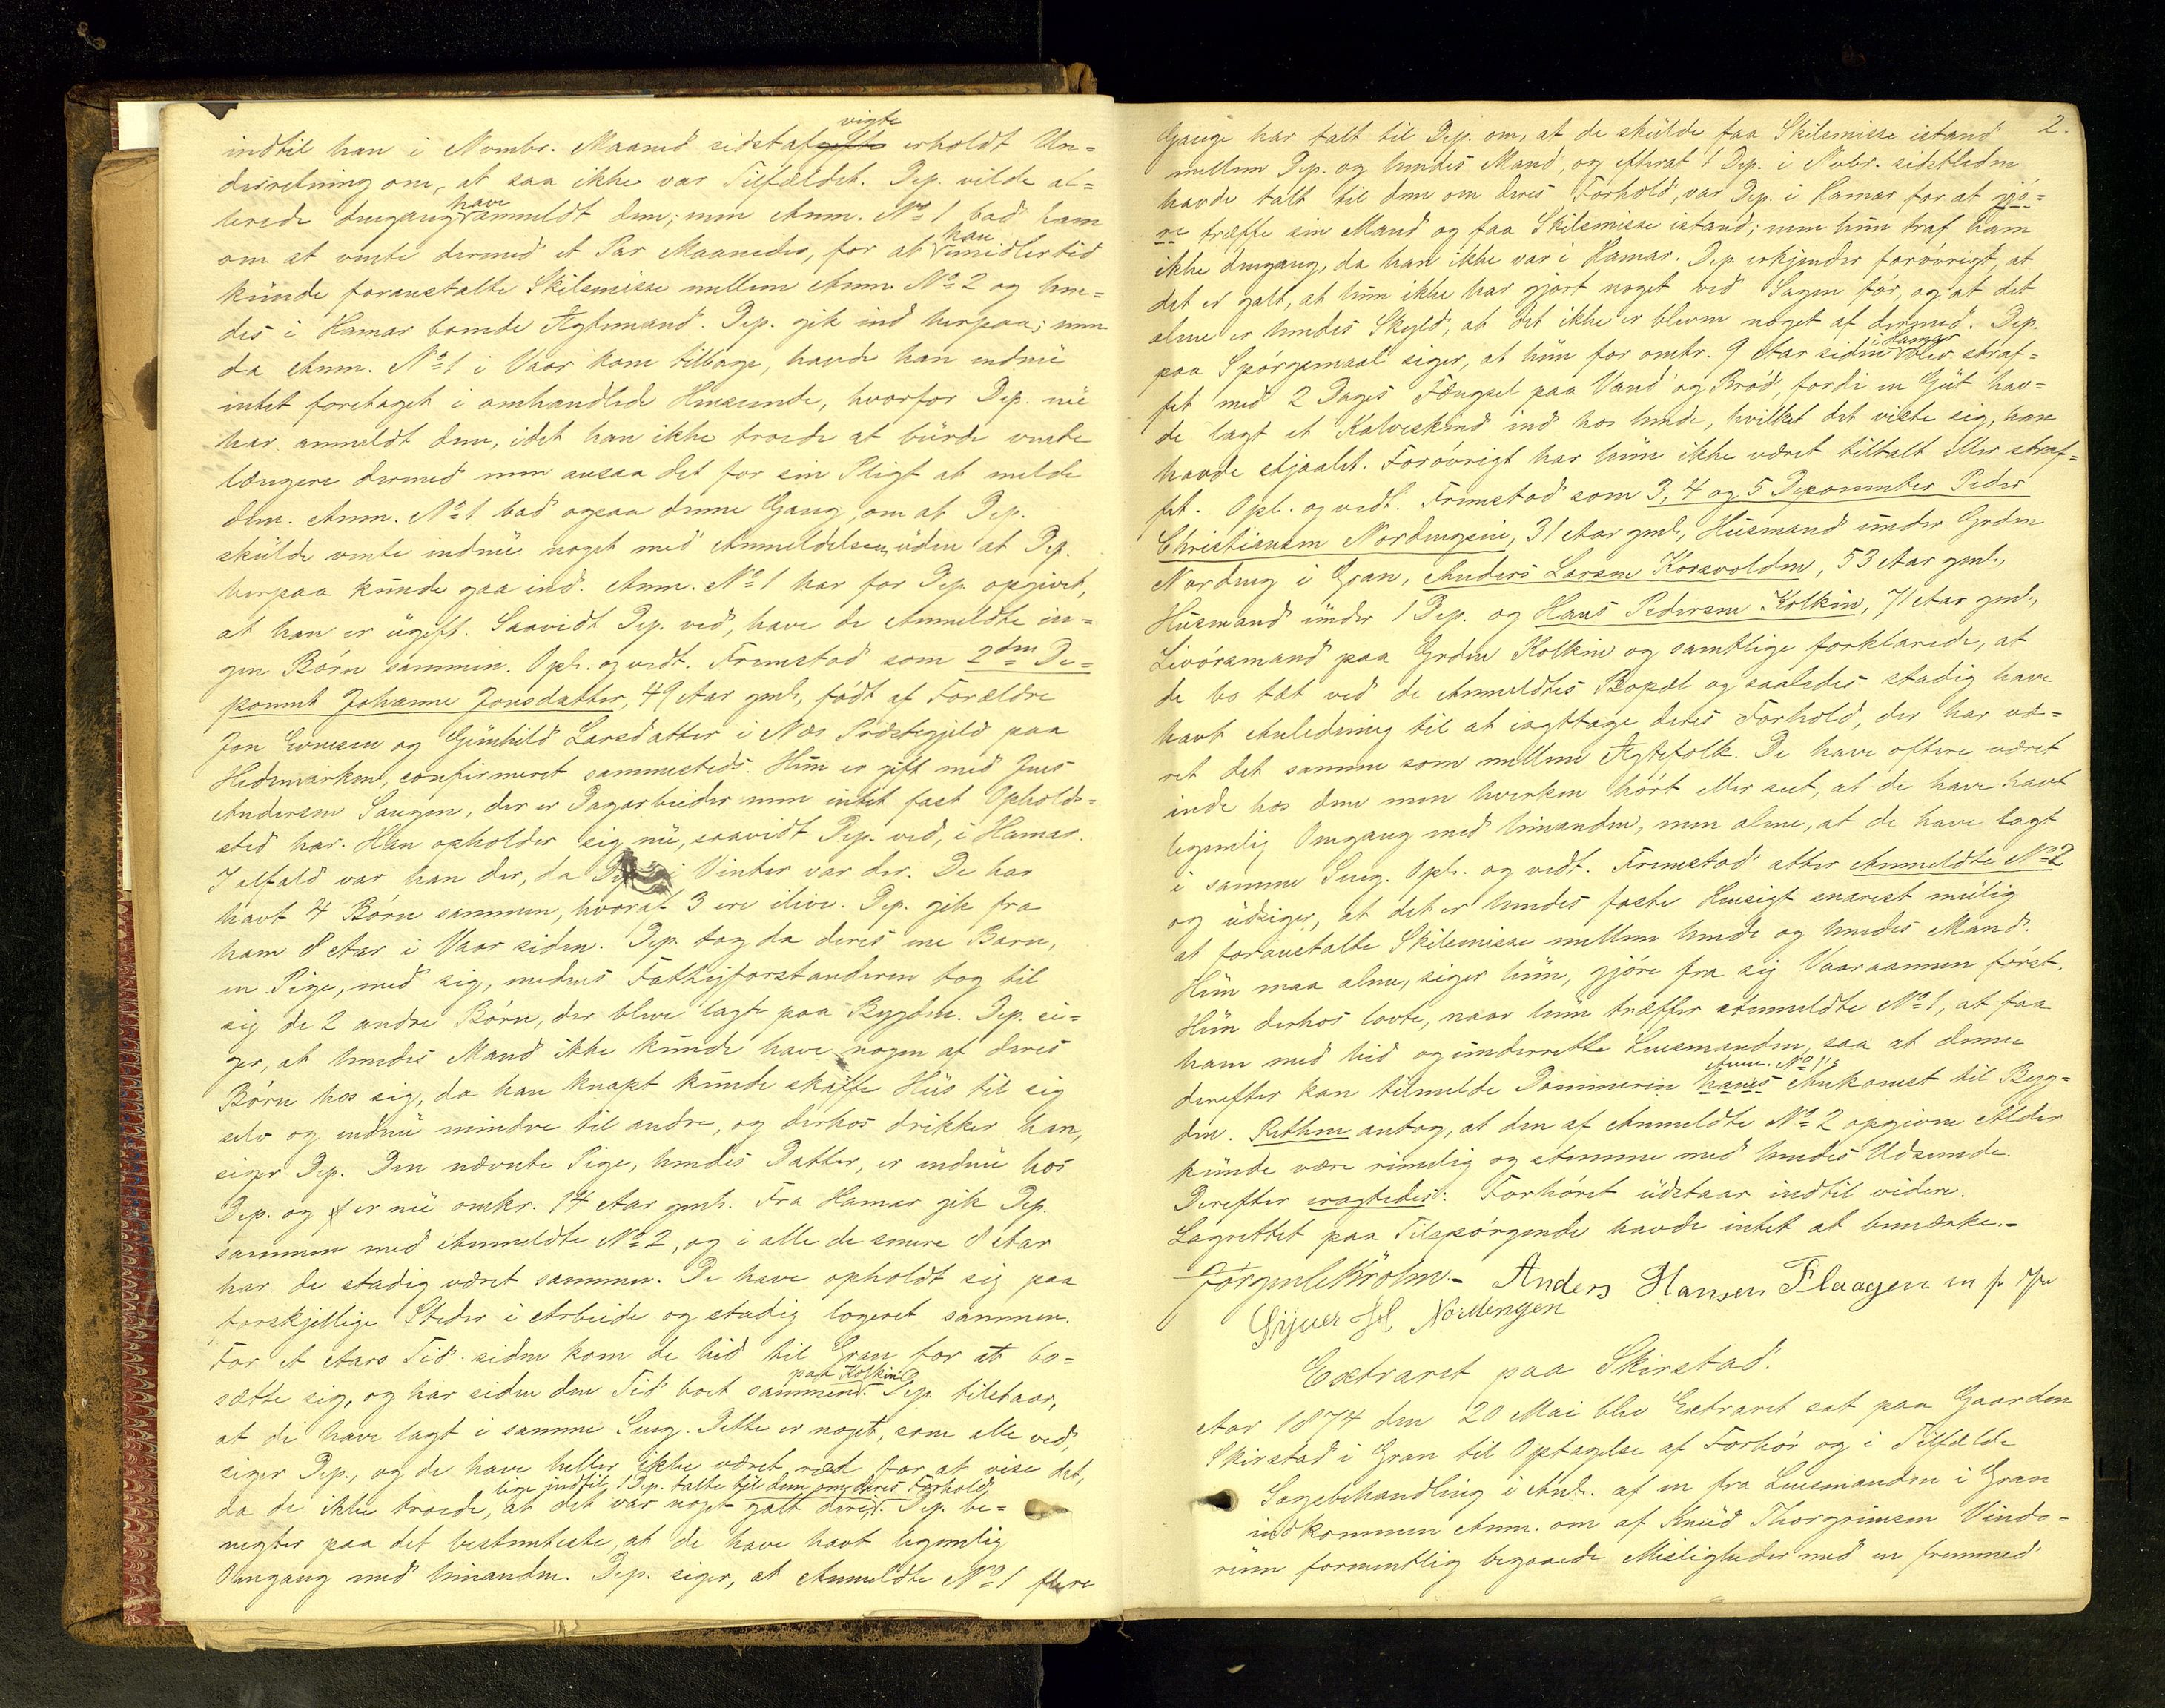 indtil han i Novmbr. Maaned sidstafvigte erholdt Un-
derretning om, at saa ikke var Tilfældet. Dep. vilde al-
lerede dengang have anmeldt dem; men Anm. No 1 bad ham
om at vente dermed et Par Maaneder, for at han imidlertid
kunde foranstalte Skilsmisse mellem Anm. No 2 og hen-
des i Hamar boende Ægtemand. Dep. gik ind herpaa; men
da Anm. No 1 i Vaar kom tilbage, havde han endnu
intet foretaget i omhandlede Henseende, hvorfor Dep. nu
har anmeldt dem, idet han ikke troede at burde vente
længere dermed men ansaa det for sin Pligt at melde
dem. Anm. No 1 bad ogsaa denne Gang, om at Dep.
skulde vente endnu noget med Anmeldelsen, uden at Dep.
herpaa kunde gaa ind. Anm. No 1 har for Dep. opgivet,
at han er ugift. Saavidt Dep. ved, have de Anmeldte in-
gen Børn sammen. Opl. og vedt. Fremstod som 2den De-
ponent Johanne Jonsdatter, 49 Aar gml., født af Forældre
Jon Evensen og Gunhild Larsdatter i Næs Præstegjeld paa
Hedemarken, confirmeret sammesteds. Hun er gift med Jens
Andersen Saugen, der er Dagarbeider men intet fast Opholds-
sted har. Han opholder sig nu, saavidt Dep. ved, i Hamar.
I alfald var han der, da Dep. i Vinter var der. De har
havt 4 Børn sammen, hvoraf 3 ere ilive. Dep. gik fra
ham 8 Aar i Vaar siden. Dep. tog da deres ene Barn,
en Pige, med sig, medens Fattigforstanderen tog til
sig de 2 andre Børn, der bleve lagte paa Bygden. Dep. si-
ger, at hendes Mand ikke kunde have nogen af deres
Børn hos sig, da han knapt kunde skaffe Hus til sig
selv og endnu mindre til andre, og derhos drikker han,
siger Dep. Den nævnte Pige, hendes Datter, er endnu hos
Dep. og er nu omkr. 14 Aar gml. Fra Hamar gik Dep.
sammen med Anmeldte No 2, og i alle de senere 8 Aar
har de stadig været sammen. De have opholdt sig paa
forskjellige Steder i Arbeide og stadig logeret sammen.
For et Aars Tid siden kom de hid til Gran for at bo-
sætte sig, og har siden den Tid boet sammen paa Kolkin. Dep. tilstaar,
at de have lagt i samme Seng. Dette er noget, som alle ved,
siger Dep., og de have heller ikke været ræd for at vise det,
da de ikke troede, lige indtil 1 Dep. talte til dem om deres Forhold, at det var noget galt deri. Dep. be-
negter paa det bestemteste, at de have havt legemlig
Omgang med hinanden. Dep. siger, at Anmeldte No 1 flere
2.
Gange har talt til Dep. om, at de skulde faa Skilsmisse istand
mellem Dep. og hendes Mand, og efterat 1 Dep. i Novbr. sidstleden
havde talt til dem om deres Forhold, var Dep. i Hamar for at gjø-
re træffe sin Mand og faa Skilsmisse istand; men hun traf ham
ikke dengang, da han ikke var i Hamar. Dep. erkjender forøvrigt, at
det er galt, at hun ikke har gjort noget ved Sagen før, og at det
alene er hendes Skyld, at det ikke er bleven noget af dermed. Dep.
paa Spørgsmaal siger, at hun for omkr. 9 Aar siden i Hamar blev straf-
fet med 2 Dages Fængsel paa Vand og Brød, fordi en Gut hav-
de lagt et Kalveskind ind hos hende, hvilket det viste sig, han
havde stjaalet. Forøvrigt har hun ikke været tiltalt eller straf-
fet. Opl. og vedt. Fremstod som 3, 4 og 5 Deponenter Peder
Christiansen Nordengeie, 31 Aar gml., Husmand under Grden
Nordeng i Gran, Anders Larsen Korsvolden, 53 Aar gml.,
Husmand under 1 Dep. og Hans Pedersen Kolkin, 71 Aar gml.,
Livørsmand paa Grden Kolkin og samtlige forklarede, at
de bo tæt ved de Anmeldtes Bopæl og saaledes stadig have
havt Anledning til at iagttage deres Forhold, der har væ-
ret det samme som mellem Ægtefolk. De have oftere været
inde hos dem men hverken hørt eller seet, at de have havt
legemlig Omgang med hinanden, men alene, at de have lagt
i samme Seng. Opl. og vedt. Fremstod atter Anmeldte No 2
og udsiger, at det er hendes faste Hensigt snarest mulig
at foranstalte Skilsmisse mellem hende og hendes Mand.
Hun maa alene, siger hun, gjøre fra sig Vaaraannen først.
Hun derhos lovte, naar hun træffer Anmeldte No 1, at faa
ham med hid og underrette Lensmanden, saa at denne
derefter kan tilmelde Dommeren hans Anm. No 1's Ankomst til Byg-
den. Retten antog, at den af Anmeldte No 2 opgivne Alder
kunde være rimelig og stemme med hendes Udseende.
Derefter eragtedes: Forhøret udstaar indtil videre.
Lagrettet paa Tilspørgende havde intet at bemærke.-
Anders Hansen Flaagen m p Pen
Nordengen
Extraret paa Skirstad.
Aar 1874 den 20 Mai blev Extraret sat paa Gaarden
Skirstad i Gran til Optagelse af Forhør og i Tilfælde
Sagsbehandling i Anl. af en fra Lensmanden i Gran
indkommen Anm. om af Knud Thorgrimsen Vindo-
renn formentlig begaaede Misligheder med en fremmed